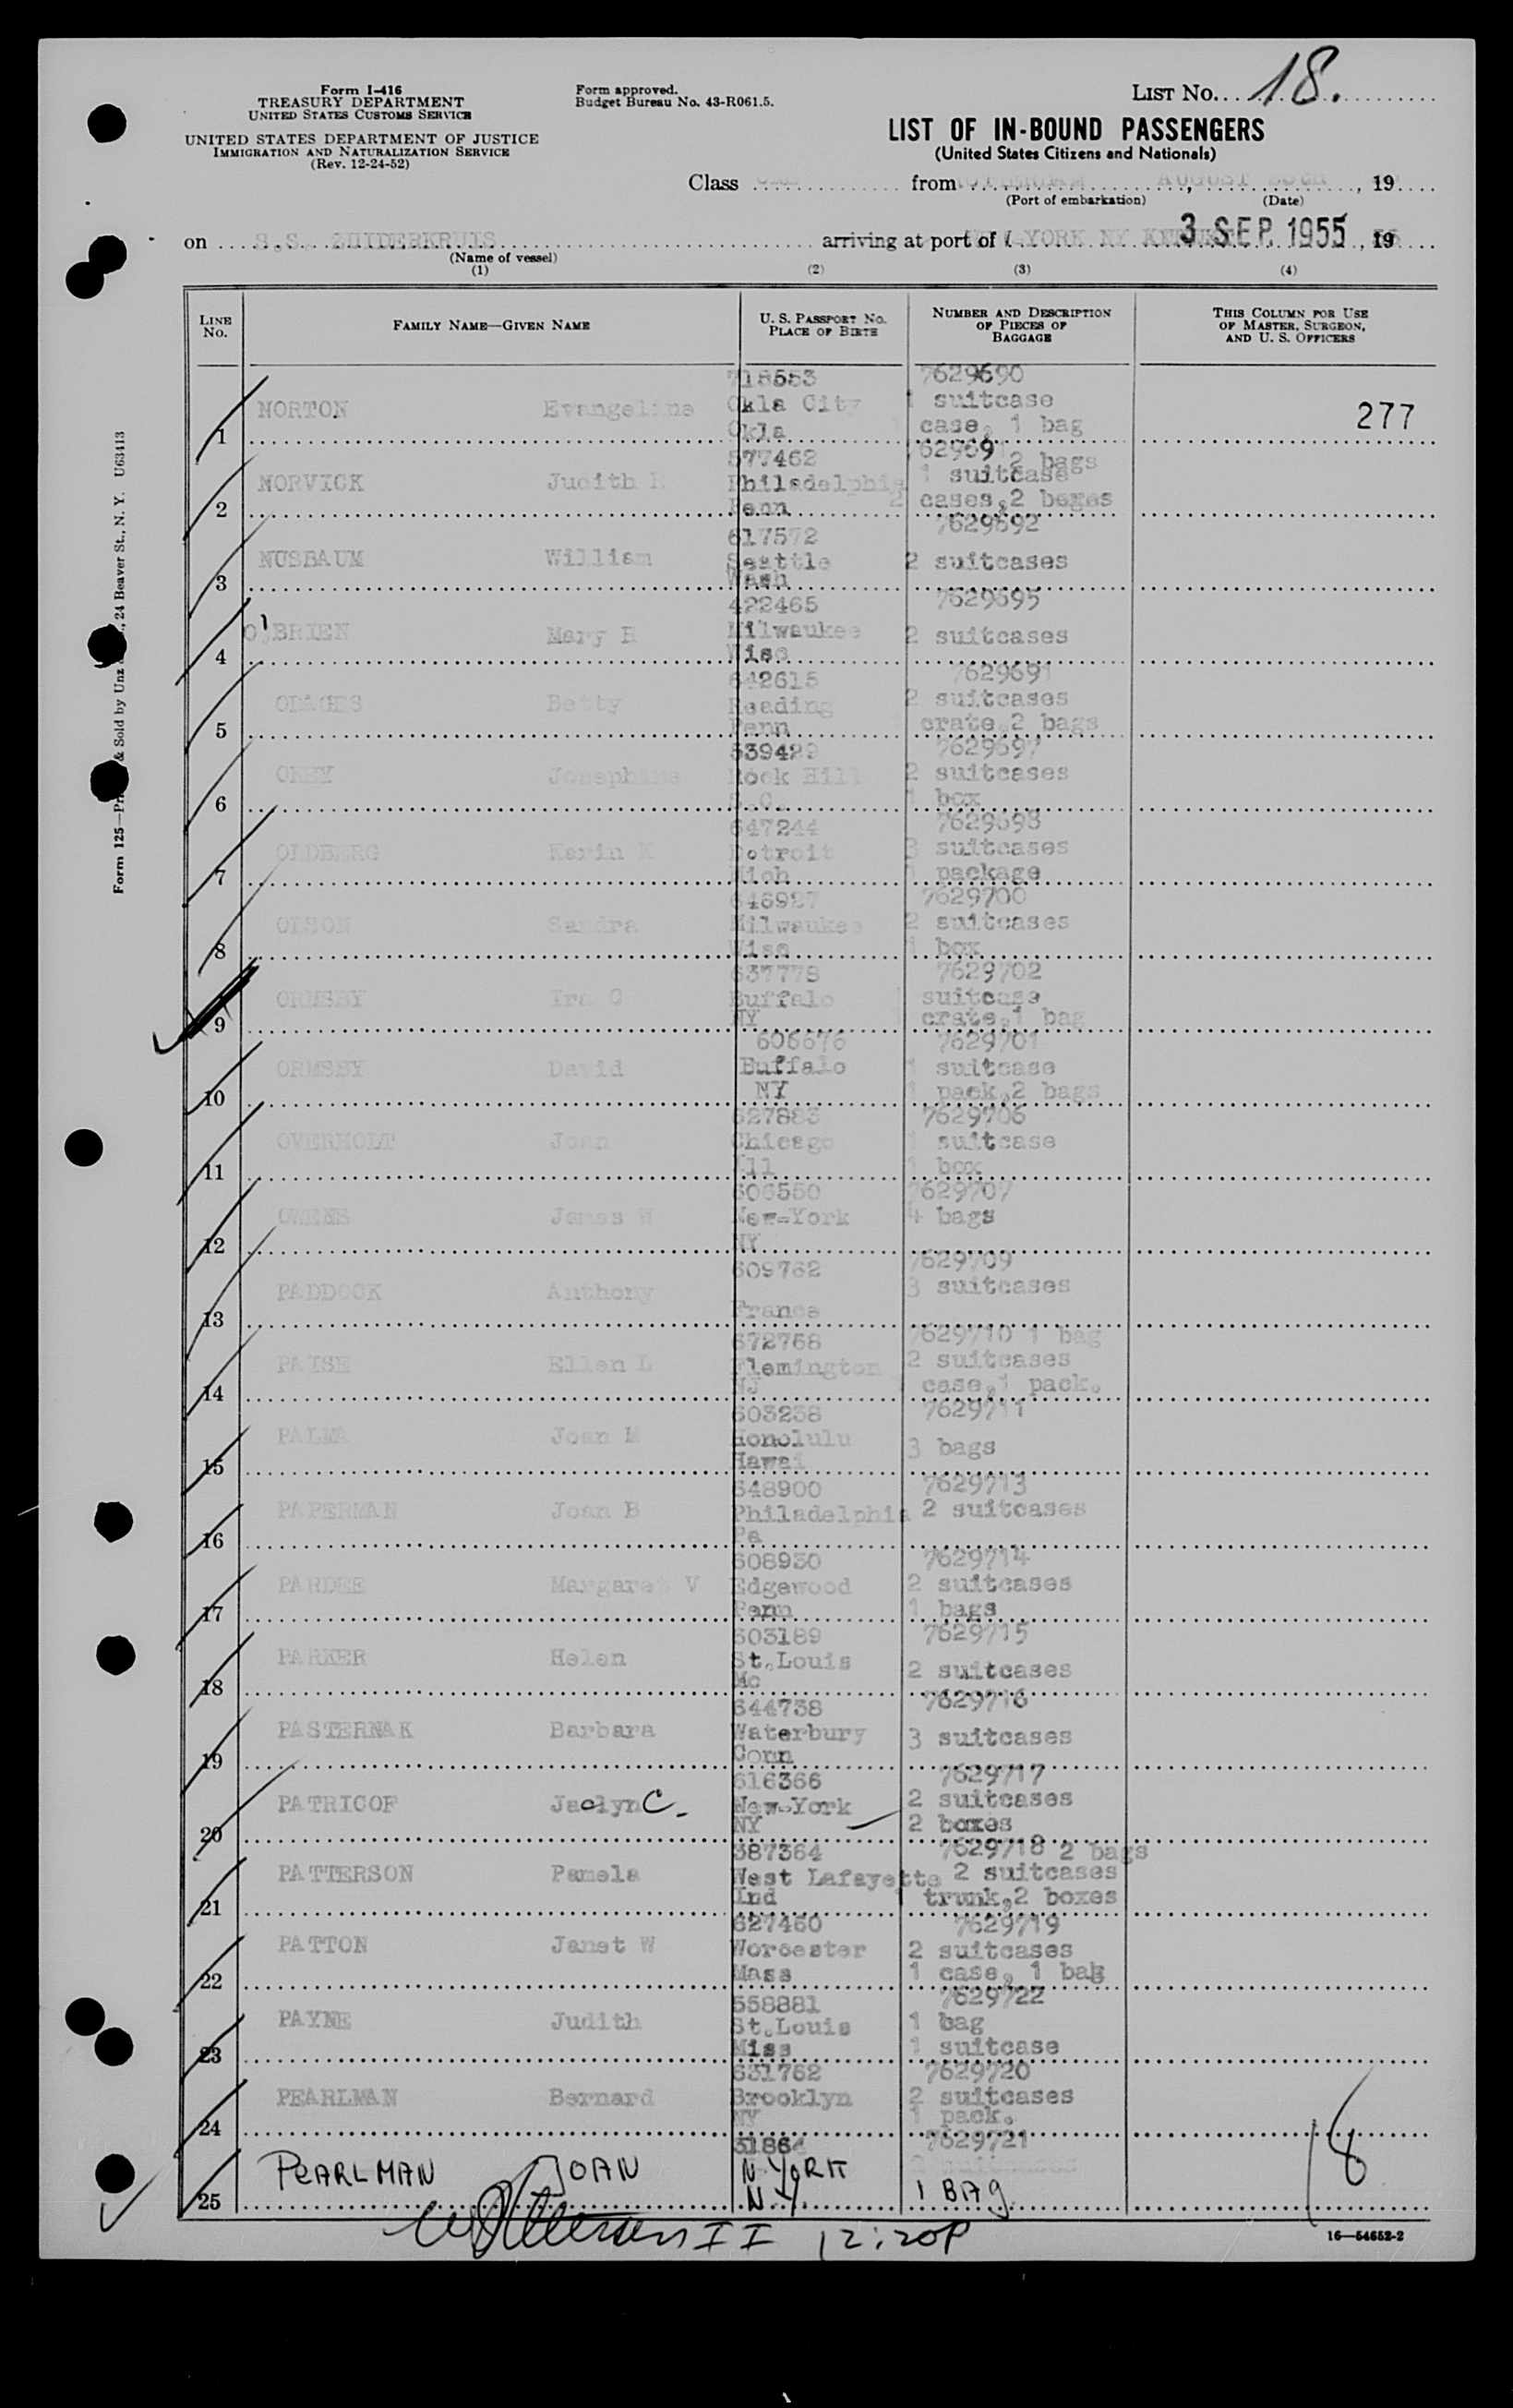 Form I-416
TREASURY DEPARTMENT
UNITED STATES CUSTOMS SERVICE
UNITED STATES DEPARTMENT OF JUSTICE
IMMIGRATION AND NATURALIZATION SERVICE
(Rev. 12-24-52)
Form approved.
Budget Bureau No. 43-R061.5.
LIST No. 18.
LIST OF IN-BOUND PASSENGERS
(United States Citizens and Nationals)
Class from AUGUST , 19
(Port of embarkation) (Date)
on S.S. ZUIDERKRUIS arriving at port of YORK NY 3 SEP 1955, 19
(Name of vessel)
(1) (2) (3) (4)
LINE No.
FAMILY NAME—GIVEN NAME
U. S. PASSPORT No.
PLACE OF BIRTH
NUMBER AND DESCRIPTION OF PIECES OF BAGGAGE
THIS COLUMN FOR USE OF MASTER, SURGEON, AND U. S. OFFICERS
718553 7629690
NORTON Evangeline Okla City 1 suitcase 277
1 Okla case, 1 bag
577462 762969 2 bags
NORVICK Judith Philadelphia 1 suitcase
2 Penn 2 cases,2 boxes
617572 7629692
NUSBAUM William Seattle 2 suitcases
3 Wash
422465 7629695
O'BRIEN Mary Milwaukee 2 suitcases
4 Wisc
642615 7629691
Betty Reading 2 suitcases
5 Penn crate,2 bags
539429 7629697
Josephine Rock Hill 2 suitcases
6 S.C. 1 box
647244 7629698
OLDBERG Karin K Detroit 3 suitcases
7 Mich 1 package
646927 7629700
OLSON Sandra Milwaukee 2 suitcases
8 Wisc 1 box
637778 7629702
ORMSBY Ira Buffalo suitcase
9 NY crate,1 bag
606676 7629701
ORMSBY David Buffalo 1 suitcase
10 NY 1 pack,2 bags
627883 7629706
OVERHOLT Joan Chicago 1 suitcase
11 Ill 1 box
606550 7629707
OWENS James W New-York 4 bags
12 NY
609762 7629709
PADDOCK Anthony 3 suitcases
13 France
672768 7629710 1 bag
PAISE Ellen L Flemington 2 suitcases
14 NJ case,1 pack.
603238 7629711
PALMA Joan M Honolulu 3 bags
15 Hawai
648900 7629713
PAPERMAN Joan B Philadelphia 2 suitcases
16 Pa
608930 7629714
PARDEE Margaret V Edgewood 2 suitcases
17 Penn 1 bags
603189 7629715
PARKER Helen St.Louis 2 suitcases
18 Mo
644738 7629716
PASTERNAK Barbara Waterbury 3 suitcases
19 Conn
616366 7629717
PATRICOF Jaclyn C. New-York 2 suitcases
20 NY 2 boxes
387364 7629718 2 bags
PATTERSON Pamela West Lafayette 2 suitcases
21 Ind 1 trunk,2 boxes
627460 7629719
PATTON Janet W Worcester 2 suitcases
22 Mass 1 case, 1 bag
558881 7629722
PAYNE Judith St.Louis 1 bag
23 Miss 1 suitcase
631762 7629720
PEARLMAN Bernard Brooklyn 2 suitcases
24 NY 1 pack.
7629721
PEARLMAN JOAN N. YORK
25 N.Y. 1 BAG.
II 12:20P
18
16—54652-2
Form 125—Pri & Sold by Unz , 24 Beaver St., N. Y. U63413